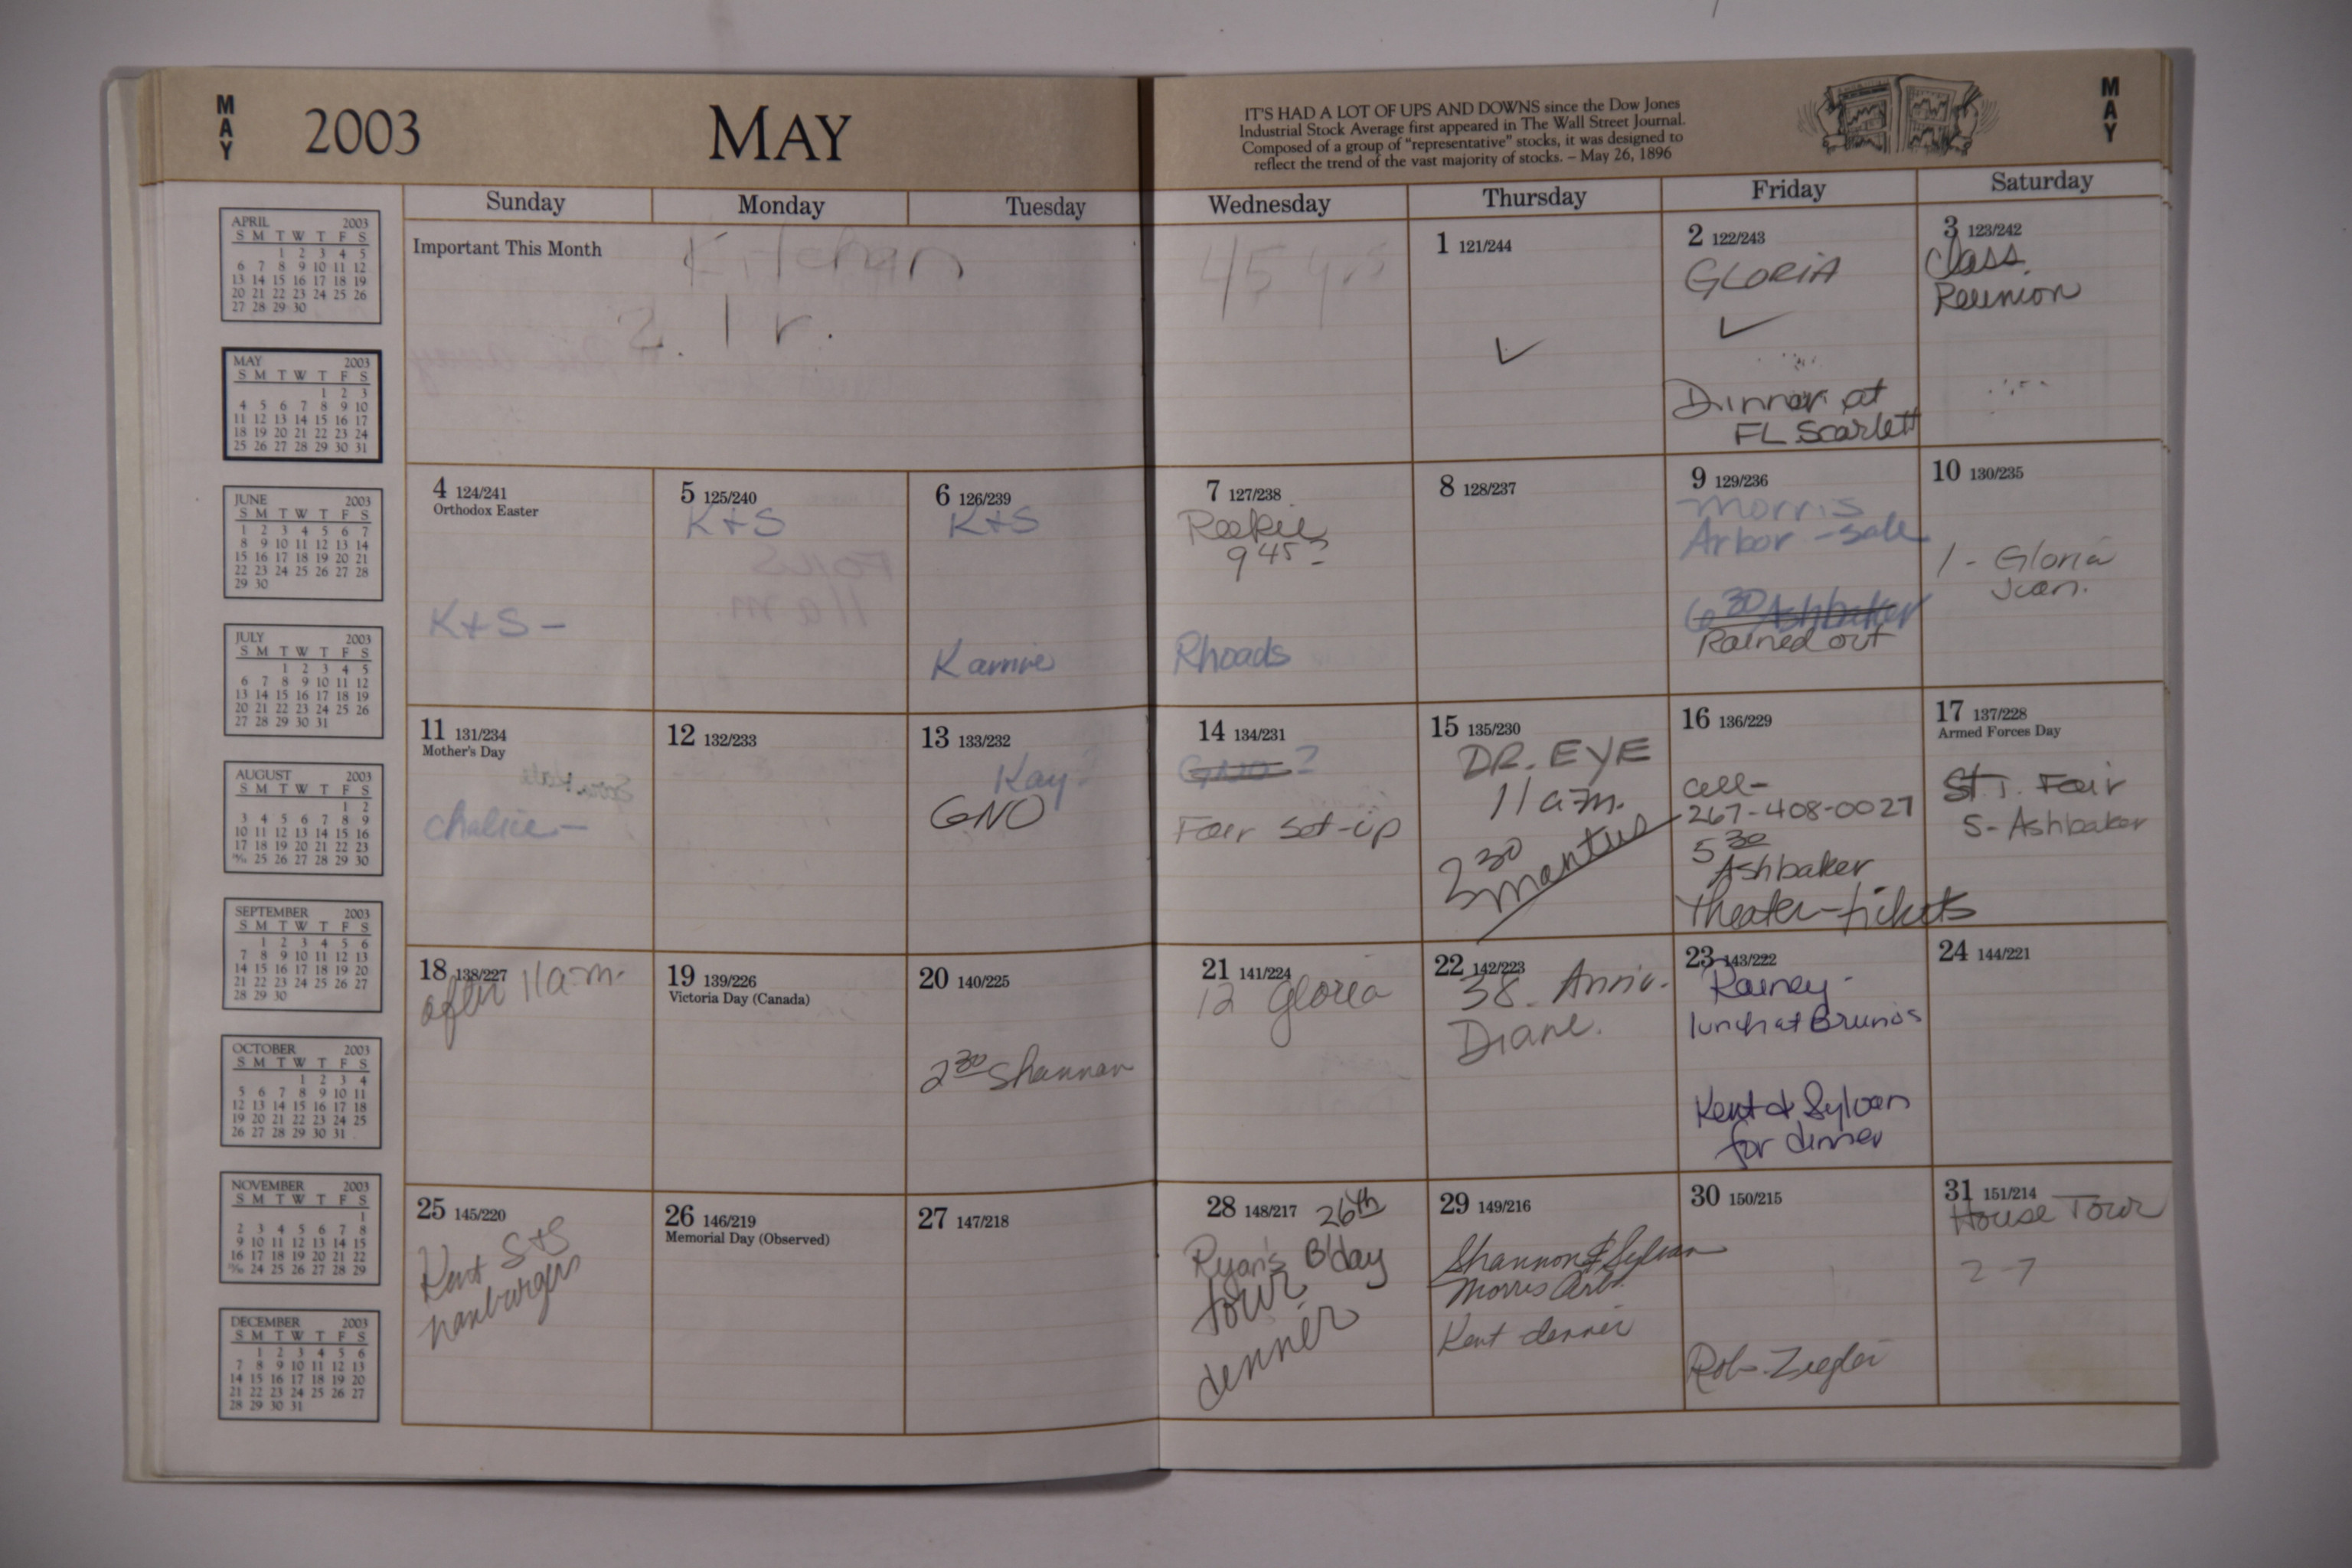 MAY
2003
MAY
IT'S HAD A LOT OF UPS AND DOWNS since the Dow Jones
Industrial Stock Average first appeared in The Wall Street Journal.
Composed of a group of "representative" stocks, it was designed to
reflect the trend of the vast majority of stocks. – May 26, 1896
MAY
Sunday Monday Tuesday Wednesday Thursday Friday Saturday
APRIL 2003
S M T W T F S
1 2 3 4 5
6 7 8 9 10 11 12
13 14 15 16 17 18 19
20 21 22 23 24 25 26
27 28 29 30
MAY 2003
S M T W T F S
1 2 3
4 5 6 7 8 9 10
11 12 13 14 15 16 17
18 19 20 21 22 23 24
25 26 27 28 29 30 31
JUNE 2003
S M T W T F S
1 2 3 4 5 6 7
8 9 10 11 12 13 14
15 16 17 18 19 20 21
22 23 24 25 26 27 28
29 30
JULY 2003
S M T W T F S
1 2 3 4 5
6 7 8 9 10 11 12
13 14 15 16 17 18 19
20 21 22 23 24 25 26
27 28 29 30 31
AUGUST 2003
S M T W T F S
1 2
3 4 5 6 7 8 9
10 11 12 13 14 15 16
17 18 19 20 21 22 23
24/31 25 26 27 28 29 30
SEPTEMBER 2003
S M T W T F S
1 2 3 4 5 6
7 8 9 10 11 12 13
14 15 16 17 18 19 20
21 22 23 24 25 26 27
28 29 30
OCTOBER 2003
S M T W T F S
1 2 3 4
5 6 7 8 9 10 11
12 13 14 15 16 17 18
19 20 21 22 23 24 25
26 27 28 29 30 31
NOVEMBER 2003
S M T W T F S
1
2 3 4 5 6 7 8
9 10 11 12 13 14 15
16 17 18 19 20 21 22
23/30 24 25 26 27 28 29
DECEMBER 2003
S M T W T F S
1 2 3 4 5 6
7 8 9 10 11 12 13
14 15 16 17 18 19 20
21 22 23 24 25 26 27
28 29 30 31
Important This Month
Kitchen
2. 1 r.
45
1 121/244
2 122/243
GLORIA
Dinner at
FL Scarlett
3 123/242
Class
Reunion
4 124/241
Orthodox Easter
K+S -
5 125/240
K+S
6 126/239
K+S
Kamie
7 127/238
945
Rhoads
8 128/237
9 129/236
Morris
Arbor - sale
630 Ashbaker
Rained out
10 130/235
1 - Gloria
Juan.
11 131/234
Mother's Day
chalice -
12 132/233
13 133/232
Kay?
GNO
14 134/231
GNO?
Fair set-up
15 135/230
DR. EYE
11 a.m.
230
16 136/229
cell-
267-408-0027
530
Ashbaker
Theater-tickets
17 137/228
Armed Forces Day
St. Fair
5 - Ashbaker
18 138/227
after 11 a.m.
19 139/226
Victoria Day (Canada)
20 140/225
230 Shannon
21 141/224
12 Gloria
22 142/223
38. Anniv.
Diane.
23 143/222
Rainey -
lunch at Brunos
Kent & Sylvan
for dinner
24 144/221
25 145/220
Kent S+S
hamburgers
26 146/219
Memorial Day (Observed)
27 147/218
28 148/217 26th
Ryan's B'day
tour
dinner
29 149/216
Shannon & Sylvan
Morris Arb.
Kent dinner
30 150/215
Rob. Ziegler
31 151/214
House Tour
2-7